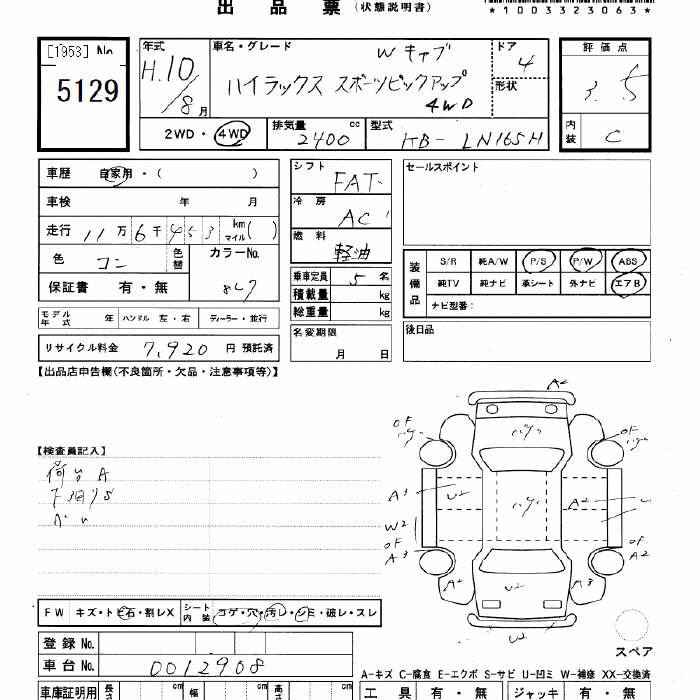 出品票 (状態説明書)
*1003323063*
[1953] No
5129
年式 H.10/8月
車名・グレード Wキャブ
ハイラックス スポーツピックアップ
4WD
ドア 4
形状
評価点 3.5
内装 C
2WD・4WD
排気量 2400 cc
型式 KB- LN165H
車歴 自家用・( )
車検 年 月
走行 11万6千453 km マイル( )
色 コン 色替 カラーNo. 8L7
保証書 有・無
シフト FAT
冷房 AC
燃料 軽油
乗車定員 5名
積載量 kg
総重量 kg
名変期限 月 日
セールスポイント
装備品 S/R 純A/W P/S P/W ABS
純TV 純ナビ 革シート 外ナビ エアB
ナビ型番:
後日品
モデル年式 年 ハンドル 左・右 ディーラー・並行
リサイクル料金 7,920 円 預託済
【出品店申告欄(不良箇所・欠品・注意事項等)】
【検査員記入】
荷台A
下廻りS
A2
OF
OF
A3
U2
A2
W2
OF
A3
OF
A2
A2
U2
A3
U2
スペア
FW キズ・トビ石・割レX シート内装 コゲ・穴・汚レ・シミ・破レ・スレ
登録 No.
車台 No. 0012908
A-キズ C-腐食 E-エクボ S-サビ U-凹ミ W-補修 XX-交換済
車庫証明用 長さ cm 幅 cm 高さ cm
工具 有・無 ジャッキ 有・無